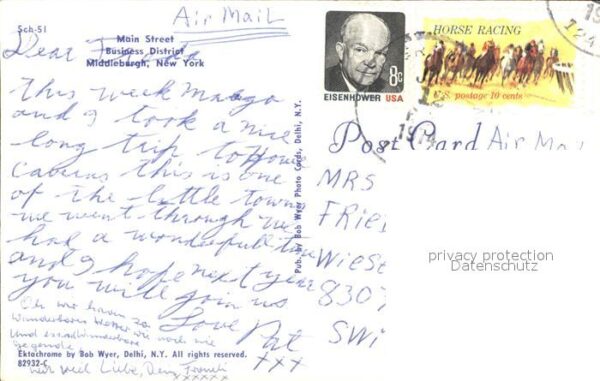 Sch-51
Air Mail
Main Street
Business District
Middleburgh, New York
Dear
This week Margo
and I took a nice
long trip to Howe
Caverns this is one
of the little towns
we went through we
had a wonderfull time
and I hope next year
you will join us
Love Pat
xxx
Oh wir haben so
wunderbares Wetter wie noch nie
und
Gegende
viel Liebe, Dein
xxxxxx
Ektachrome by Bob Wyer, Delhi, N.Y. All rights reserved.
82932-C
Pub. by Bob Wyer Photo Cards, Delhi, N.Y.
8c
EISENHOWER USA
HORSE RACING
U.S. postage 10 cents
1974
Post Card Air Ma
MRS
FRIE
WIESE
8307
SWI
privacy protection
Datenschutz